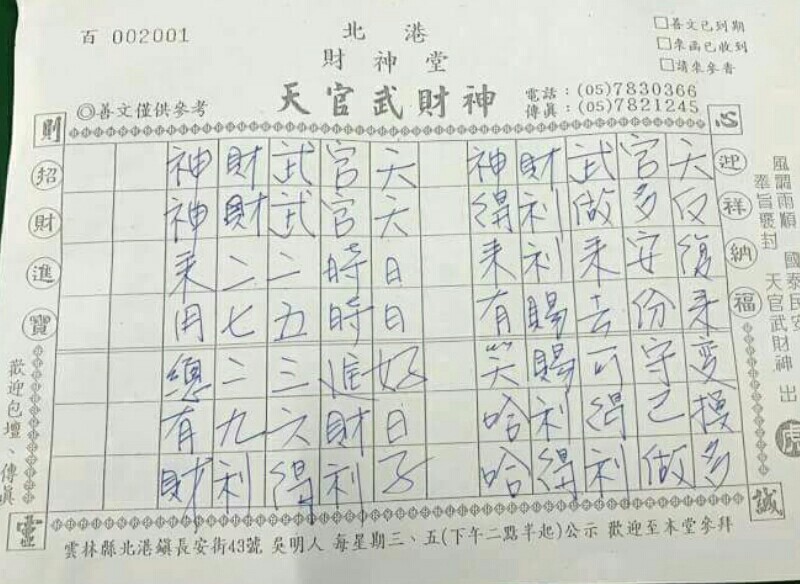 百 002001
北港
財神堂
天官武財神
◎善文僅供參考
□善文已到期
□來函已收到
□請來參香
電話：(05)7830366
傳真：(05)7821245
心
誠
則
靈
迎祥納福
招財進寶
風調雨順 國泰民安
奉旨褒封 天官武財神 出
天反復来变換多
官多安份守己做
武做来去可得利
財利利賜賜利得
神得来有笑哈哈
天天日日好日子
官官時時進財利
武武二五三六得
財財二七二九利
神神来用總有財
歡迎包壇、傳真
雲林縣北港鎮長安街43號 吳明人 每星期三、五(下午二點半起)公示 歡迎至本堂參拜